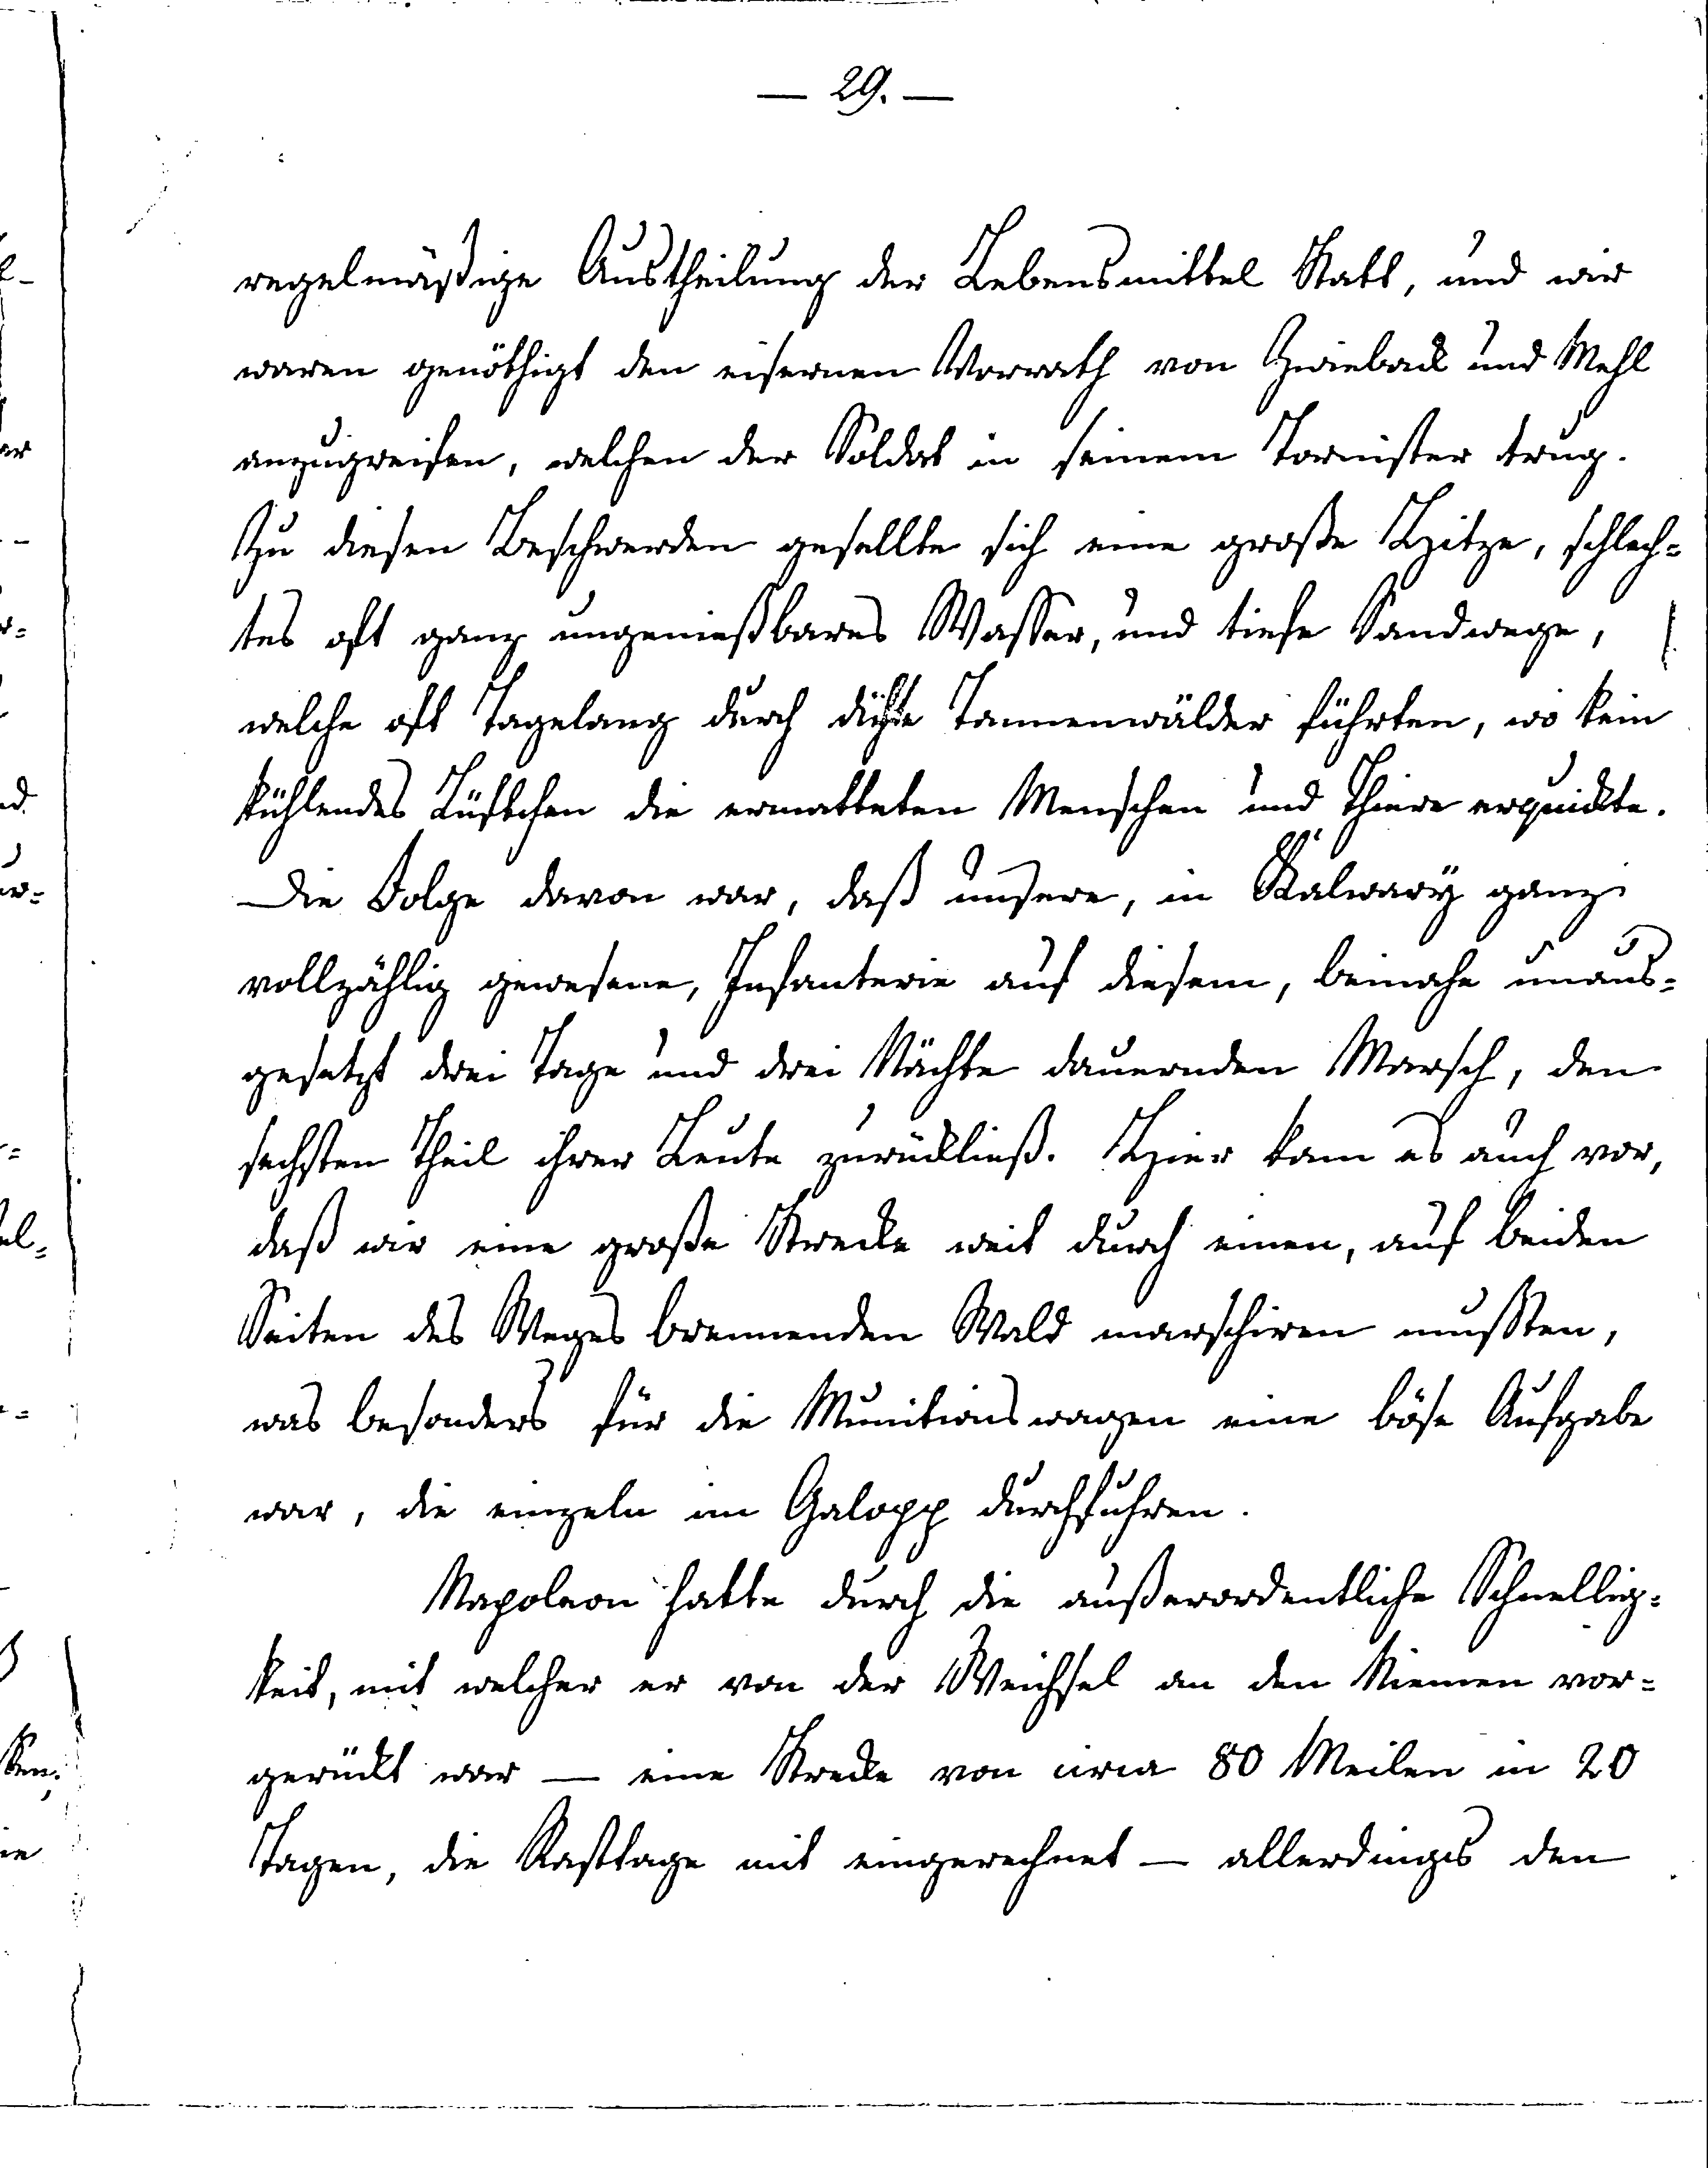 — 29. —
regelmäßige Austheilung der Lebensmittel Statt, und wir
waren genöthigt den eisernen Vorrath von Zwieback und Mehl
anzugreifen, welchen der Soldat in seinem Tornister trug.
Zu diesen Beschwerden gesellte sich eine große Hitze, schlech=
tes oft ganz ungenießbares Wasser, und tiefe Sandwege,
welche oft Tagelang durch dichte Tannenwälder führten, wo kein
kühlendes Lüftchen die ermatteten Menschen und Thiere erquickte.
Die Folge davon war, daß unsere, in Kalwary ganz
vollzählig gewesene, Infanterie auf diesem, beinahe unaus=
gesetzt drei Tage und drei Nächte dauernden Marsch, den
sechsten Theil ihrer Leute zurückließ. Hier kam es auch vor,
daß wir eine große Strecke weit durch einen, auf beiden
Seiten des Weges brennenden Wald marschiren mußten,
was besonders für die Munitionswagen eine böse Aufgabe
war, die einzeln im Galopp durchfuhren.
Napoleon hatte durch die außerordentliche Schnellig=
keit, mit welcher er von der Weichsel an den Niemen vor=
gerückt war — eine Strecke von circa 80 Meilen in 20
Tagen, die Rasttage mit eingerechnet — allerdings den